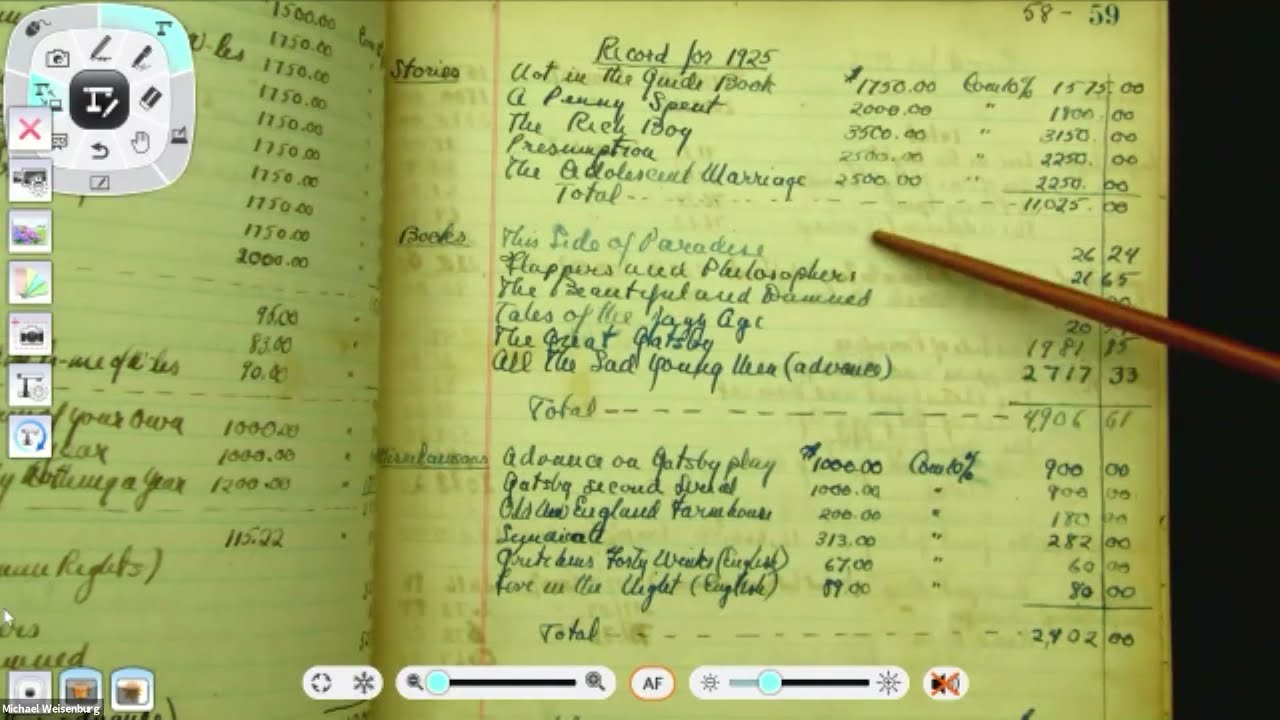 1500.00
1750.00
1750.00
1750.00
1750.00
1750.00
1750.00
1750.00
1750.00
2000.00
96.00
83.00
90.00
of your own 1000.00
1000.00
Nothing a Year 1200.00
115.22
Rights)
58 - 59
Record for 1925
Stories Not in the Guide Book $1750.00 Com 10% 1575.00
A Penny Spent 2000.00 " 1800.00
The Rich Boy 3500.00 " 3150.00
Presumption 2500.00 " 2250.00
The Adolescent Marriage 2500.00 " 2250.00
Total -- - - - - - - - 11,025.00
Books This Side of Paradise 26 24
Flappers and Philosophers 21 65
The Beautiful and Damned
Tales of the Jazz Age 20
The Great Gatsby 1981 85
All The Sad Young Men (advance) 2717 33
Total - - - - - - - - 4906 61
Advance on Gatsby play $1000.00 Com 10% 900 00
Gatsby second serial 1000.00 " 900 00
Old New England Farmhouse 200.00 " 180 00
Syndicate 313.00 " 282 00
Gretchens Forty Winks (English) 67.00 " 60 00
Love in the Night (English) 89.00 " 80 00
Total - - - - - - - - 2,402 00
AF
Michael Weisenburg